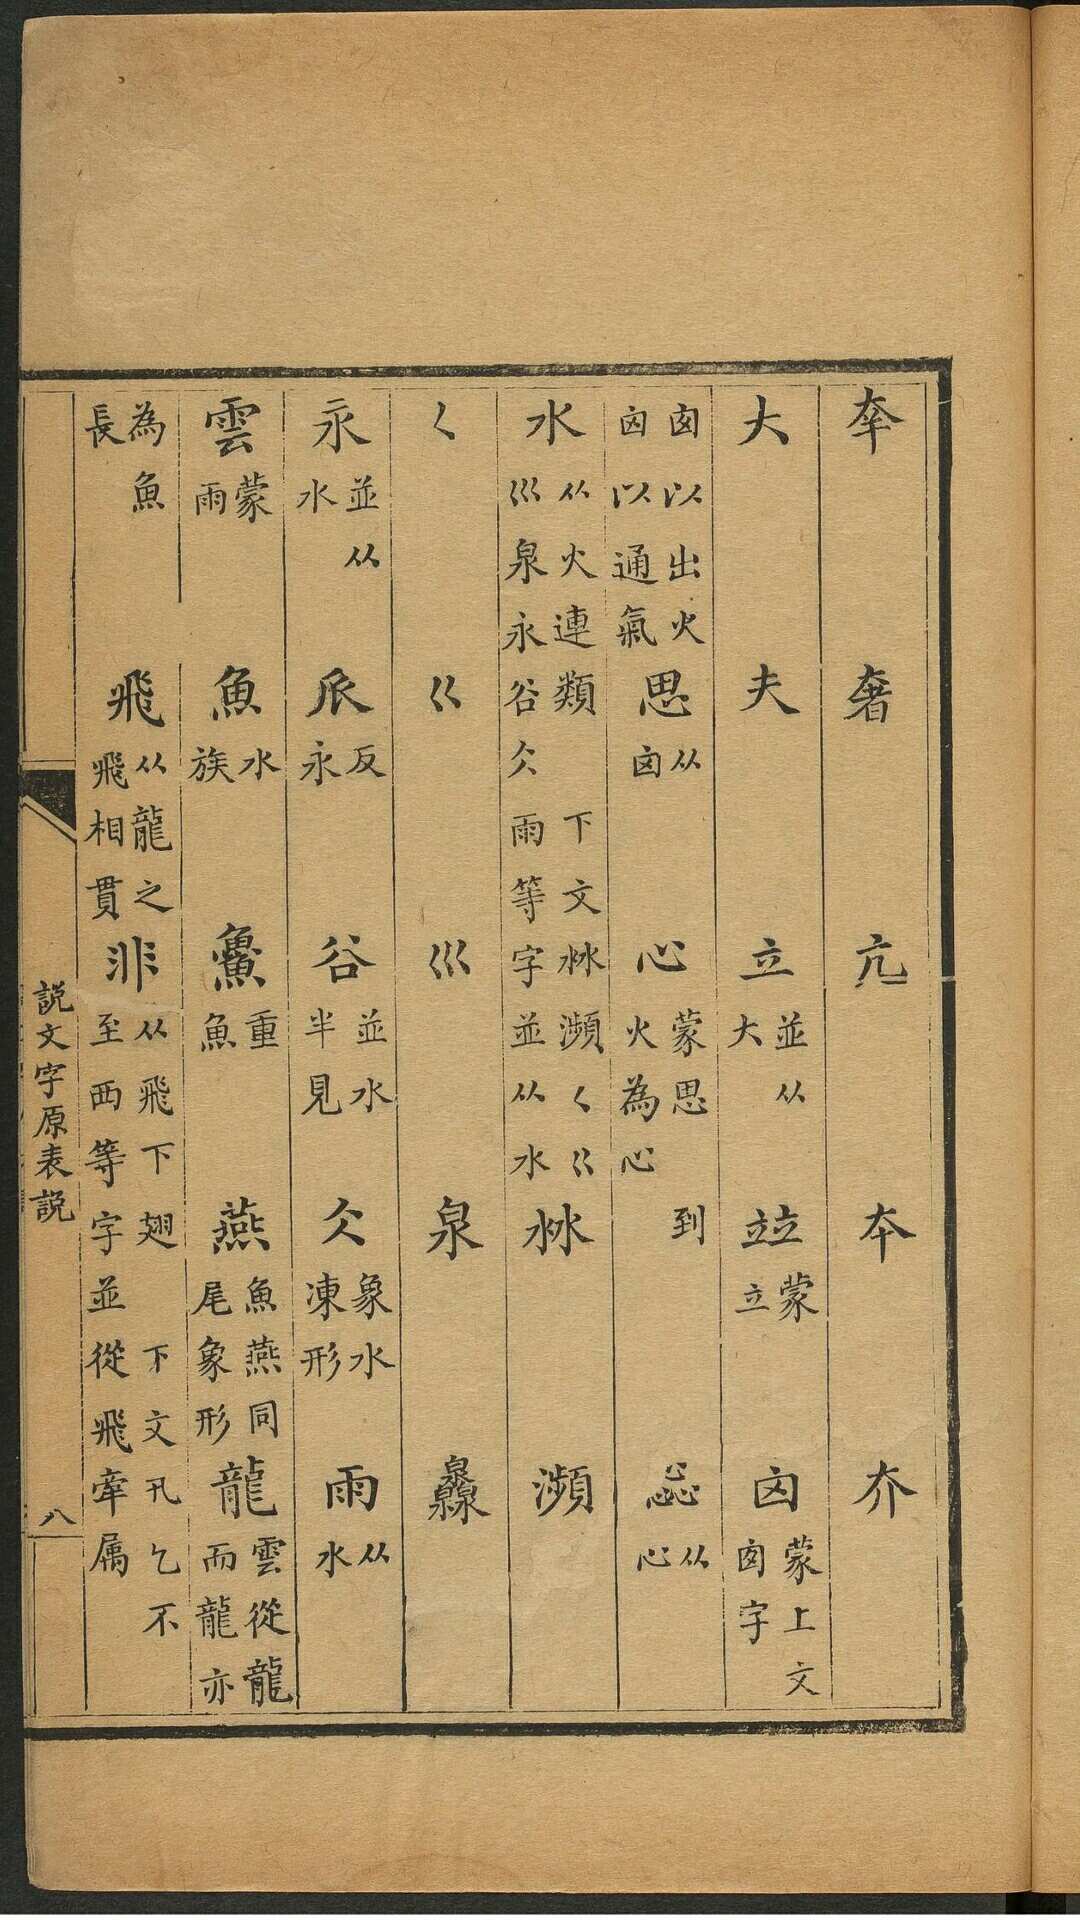 㚔 奢 亢 夲 夰
大 夫 立並从大 竝蒙立 囟蒙上文囱字
囱以出火囟以通氣 思从囟 心蒙思到火為心 惢从心
水从火連類下文沝瀕𡿨巜巛泉永谷仌雨等字並从水 沝 瀕
𡿨 巜 巛 泉 灥
永並从水 𠂢反永 谷並水半見 仌象水凍形 雨从水
雲蒙雨 魚水族 䲆重魚 燕魚燕同尾象形 龍雲從龍而龍亦
為魚長 飛从龍之飛相貫 非从飛下翅下文卂乞不至西等字並從飛牽属
說文字原表説 八